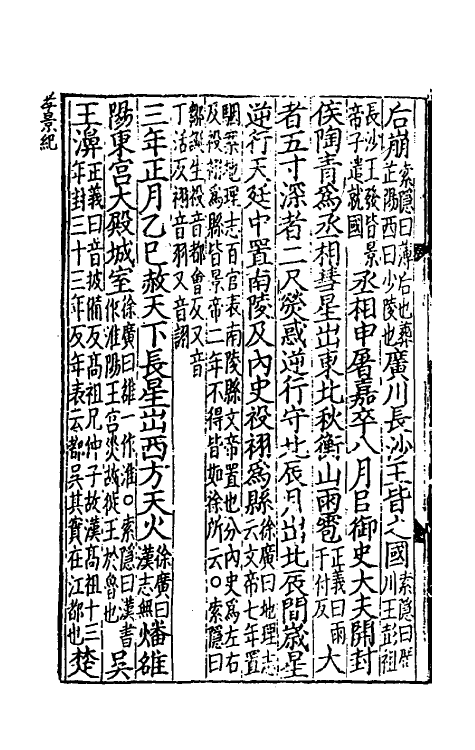 后崩索隱曰薄后也葬正陽西曰少陵也廣川長沙王皆之國索隱曰廣川王彭祖
長沙王發皆景帝子遣就國丞相申屠嘉卒八月以御史大夫開封
侯陶青爲丞相彗星出東北秋衡山雨雹正義曰雨于付反大
者五寸深者二尺熒惑逆行守北辰月出北辰間歲星
逆行天廷中置南陵及内史祋祤爲縣徐廣曰地理志云文帝七年置
駰案地理志百官表南陵縣文帝置也分内史爲左右及祋祤爲縣皆景帝二年不得皆如徐所云○索隱曰
鄒誕生祋音都會反又音丁活反祤音羽又音詡
三年正月乙巳赦天下長星出西方天火徐廣曰漢志無燔雒
陽東宮大殿城室徐廣曰雒一作淮○索隱曰漢書作淮陽王宮災故徙王於魯也吳
王濞正義曰音披備反高祖兄仲子故漢高祖十三年封三十三年反年表云都吳其實在江都也楚
孝景紀